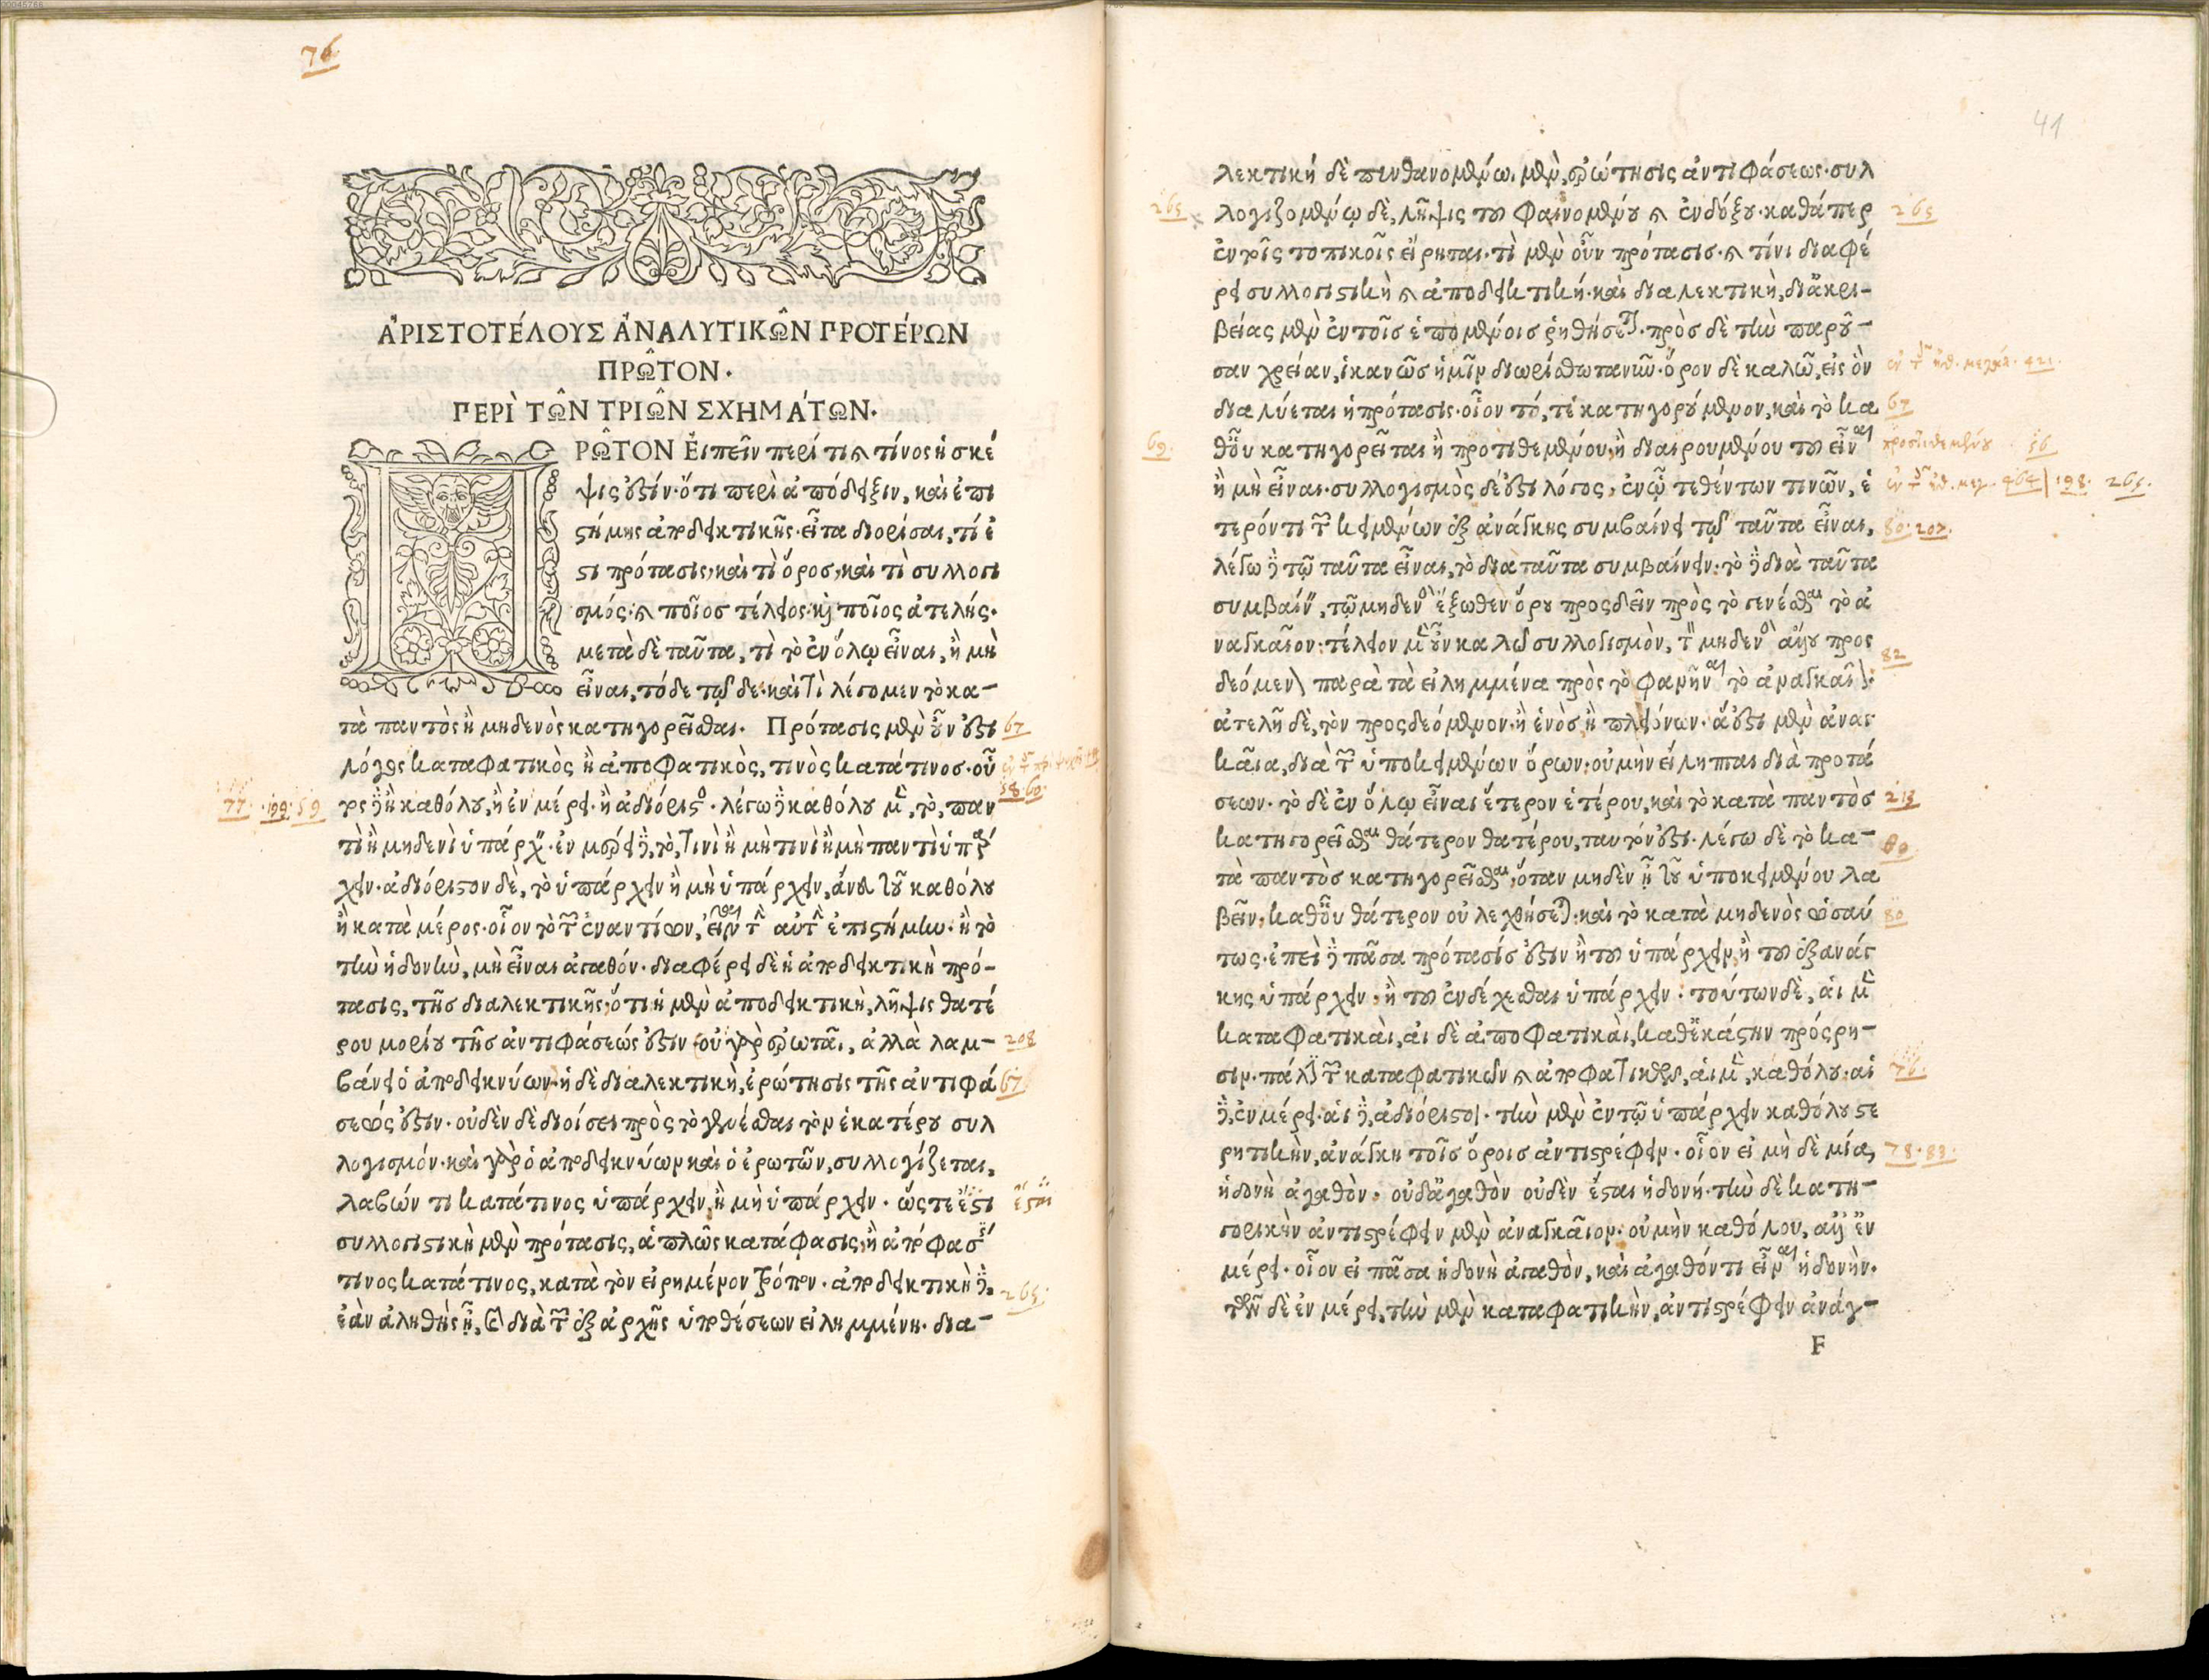 76
ἈΡΙΣΤΟΤΈΛΟΥΣ ἈΝΑΛΥΤΙΚΩ͂Ν ΠΡΟΤΈΡΩΝ
ΠΡΩ͂ΤΟΝ.
ΠΕΡῚ ΤΩ͂Ν ΤΡΙΩ͂Ν ΣΧΗΜΆΤΩΝ.
ΡΩ͂ΤΟΝ Ἐιπεῖν περί τι καὶ τίνος ἡ σκέ
ψις ὀξίν· ὅτι περὶ ἀπόδειξιν, καὶ ἐπι
στήμης ἀποδεικτικῆς· εἶτα διορίσαι, τί ἐ
στι πρότασις, καὶ τὶ ὅρος, καὶ τὶ συλλογι
σμός· καὶ ποῖος τέλειος· καὶ ποῖος ἀτελής.
μετὰ δὲ ταῦτα, τὶ τὸ ἐν ὅλῳ εἶναι, ἢ μὴ
εἶναι, τόδε τῷδε· καὶ τὶ λέγομεν τὸ κα-
τὰ παντὸς ἢ μηδενὸς κατηγορεῖσθαι. Πρότασις μὲν οὖν ἐστι 67
λόγος καταφατικὸς ἢ ἀποφατικὸς, τινὸς κατά τινος· οὗ
58·60·
77· ·199· 59 τος δὲ ἢ καθόλου, ἢ ἐν μέρει· ἢ ἀδιόριστος· λέγω δὲ καθόλου μὲν, τὸ, παν
τὶ ἢ μηδενὶ ὑπάρχειν· ἐν μέρει δὲ, τὸ, τινὶ ἢ μὴ τινὶ ἢ μὴ παντὶ ὑπάρ
χειν· ἀδιόριστον δὲ, τὸ ὑπάρχειν ἢ μὴ ὑπάρχειν, ἄνευ τοῦ καθόλου
ἢ κατὰ μέρος· οἷον τὸ τῶν ἐναντίων, εἶναι τὴν αὐτὴν ἐπιστήμην· ἢ τὸ
τὴν ἡδονὴν, μὴ εἶναι ἀγαθόν· διαφέρει δὲ ἡ ἀποδεικτικὴ πρό-
τασις, τῆς διαλεκτικῆς· ὅτι ἡ μὲν ἀποδεικτικὴ, λῆψις θατέ
ρου μορίου τῆς ἀντιφάσεώς ἐστιν· οὐ γὰρ ἐρωτᾶι, ἀλλὰ λαμ- 208
βάνει ὁ ἀποδεικνύων· ἡ δὲ διαλεκτικὴ, ἐρώτησις τῆς ἀντιφά 67
σεώς ἐστιν· οὐδὲν δὲ διοίσει πρὸς τὸ γενέσθαι τὸν ἑκατέρου συλ
λογισμόν· καὶ γὰρ ὁ ἀποδεικνύων καὶ ὁ ἐρωτῶν, συλλογίζεται,
λαβών τι κατά τινος ὑπάρχειν, ἢ μὴ ὑπάρχειν· ὥστε ἔστι ἔσται
συλλογιστικὴ μὲν πρότασις, ἁπλῶς κατάφασις, ἢ ἀπόφασις
τινος κατά τινος, κατὰ τὸν εἰρημένον τρόπον· ἀποδεικτικὴ δὲ, 265·
ἐὰν ἀληθὴς ᾖ, καὶ διὰ τῶν ἐξ ἀρχῆς ὑποθέσεων εἰλημμένη· δια-
41
λεκτική δὲ πυνθανομένῳ μὲν, ἐρώτησις ἀντιφάσεως· συλ
265 λογιζομένῳ δὲ, λῆψις τοῦ φαινομένου καὶ ἐνδόξου· καθάπερ 265
ἐν τοῖς τοπικοῖς εἴρηται· τὶ μὲν οὖν πρότασις· καὶ τίνι διαφέ
ρει συλλογιστικὴ καὶ ἀποδεικτική· καὶ διαλεκτικὴ, δι' ἀκρι-
βείας μὲν ἐν τοῖς ἑπομένοις ῥηθήσεται· πρὸς δὲ τὴν παροῦ-
σαν χρείαν, ἱκανῶς ἡμῖν διωρίσθω τανῦν· ὅρον δὲ καλῶ, εἰς ὃν
διαλύεται ἡ πρότασις· οἷον τό, τὲ κατηγορούμενον, καὶ τὸ κα 67
69. θ' οὗ κατηγορεῖται ἢ προτιθεμένου, ἢ διαιρουμένου τοῦ εἶναι προστιθεμένου 56
ἢ μὴ εἶναι· συλλογισμὸς δέ ἐστι λόγος, ἐν ᾧ τεθέντων τινῶν, ἕ 464 198· 265·
τερόν τι τῶν κειμένων ἐξ ἀνάγκης συμβαίνει τῷ ταῦτα εἶναι, 80· 207·
λέγω δὲ τῷ ταῦτα εἶναι, τὸ διὰ ταῦτα συμβαίνειν· τὸ δὲ διὰ ταῦτα
συμβαίνειν, τῷ μηδενὸς ἔξωθεν ὅρου προςδεῖν πρὸς τὸ γενέσθαι τὸ ἀ
ναγκαῖον· τέλειον μὲν οὖν καλῶ συλλογισμὸν, τὸν μηδενὸς ἄλλου προς
δεόμενον παρὰ τὰ εἰλημμένα πρὸς τὸ φανῆναι τὸ ἀναγκαῖον· 82
ἀτελῆ δὲ, τὸν προςδεόμενον· ἢ ἑνὸς ἢ πλειόνων· ἅ ἐστι μὲν ἀναγ
καῖα, διὰ τῶν ὑποκειμένων ὅρων· οὐ μὴν εἴληπται διὰ προτά
σεων· τὸ δὲ ἐν ὅλῳ εἶναι ἕτερον ἑτέρου, καὶ τὸ κατὰ παντὸς 213
κατηγορεῖσθαι θάτερον θατέρου, ταυτόν ἐστι· λέγω δὲ τὸ κα- 80
τὰ παντὸς κατηγορεῖσθαι, ὅταν μηδὲν ᾖ τοῦ ὑποκειμένου λα
βεῖν, καθ' οὗ θάτερον οὐ λεχθήσεται· καὶ τὸ κατὰ μηδενὸς ὡσαύ 80
τως· ἐπεὶ δὲ πᾶσα πρότασίς ἐστιν ἢ τοῦ ὑπάρχειν, ἢ τοῦ ἐξ ανάγ
κης ὑπάρχειν, ἢ τοῦ ἐνδέχεσθαι ὑπάρχειν· τούτων δὲ, αἱ μὲν
καταφατικαὶ, αἱ δὲ ἀποφατικαὶ, καθ' ἑκάστην πρόςρη-
σιν· πάλιν τῶν καταφατικῶν καὶ ἀποφατικῶν, αἱ μὲν, καθόλου· αἱ 76·
δὲ, ἐν μέρει· αἱ δὲ, ἀδιόριστοι· τὴν μὲν ἐν τῷ ὑπάρχειν καθόλου στε
ρητικὴν, ἀνάγκη τοῖς ὅροις ἀντιστρέφειν· οἷον εἰ μὴ δὲ μία, 78· 83·
ἡδονὴ ἀγαθὸν· οὐδ' ἀγαθὸν οὐδὲν ἔσται ἡδονή· τὴν δὲ κατη-
γορικὴν ἀντιστρέφειν μὲν ἀναγκαῖον· οὐ μὴν καθόλου, ἀλλ' ἐν
μέρει· οἷον εἰ πᾶσα ἡδονὴ ἀγαθὸν, καὶ ἀγαθόν τι εἶναι ἡδονὴν.
τῶν δὲ ἐν μέρει, τὴν μὲν καταφατικὴν, ἀντιστρέφειν ἀνάγ-
F